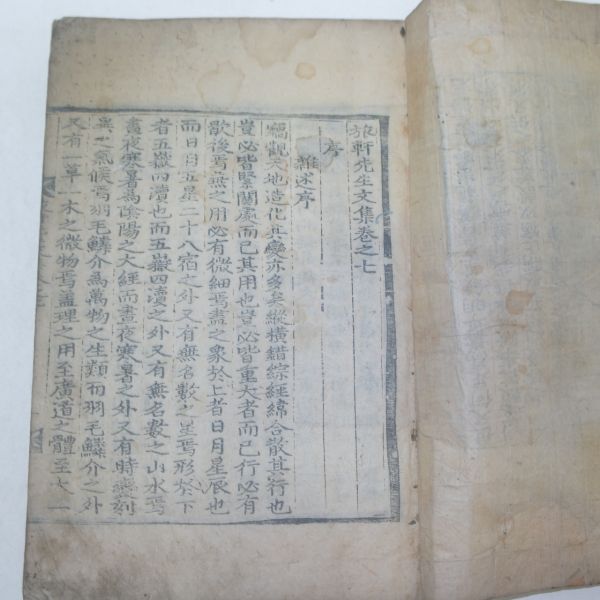 旅軒先生文集卷之七
序
雜述序
竊觀天地造化其變亦多矣縱橫錯綜經緯合散其行也
豈必皆緊關處而已其用也豈必皆重大者而已行必有
歇後焉無之用必有微細焉盡之象於上者日月星辰也
而日月五星二十八宿之外又有無名數之星焉形於下
者五嶽四瀆也而五嶽四瀆之外又有無名數之山水焉
晝夜寒暑爲陰陽之大經而晝夜寒暑之外又有時刻
異之氣候焉羽毛鱗介爲萬物之生類而羽毛鱗介之外
又有一草一木之微物焉盖理之用至廣道之體至大一